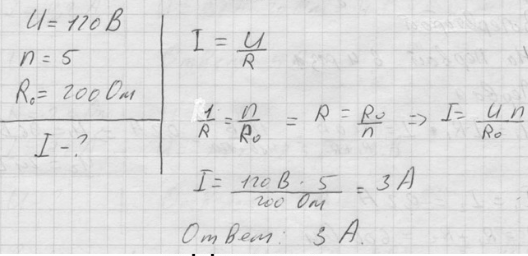 U = 120 В
n = 5
R₀ = 200 Ом
I - ?
I = U/R
1/R = n/R₀ = R = R₀/n => I = U n/R₀
I = 120 В · 5/200 Ом = 3 А
Ответ: 3 А.